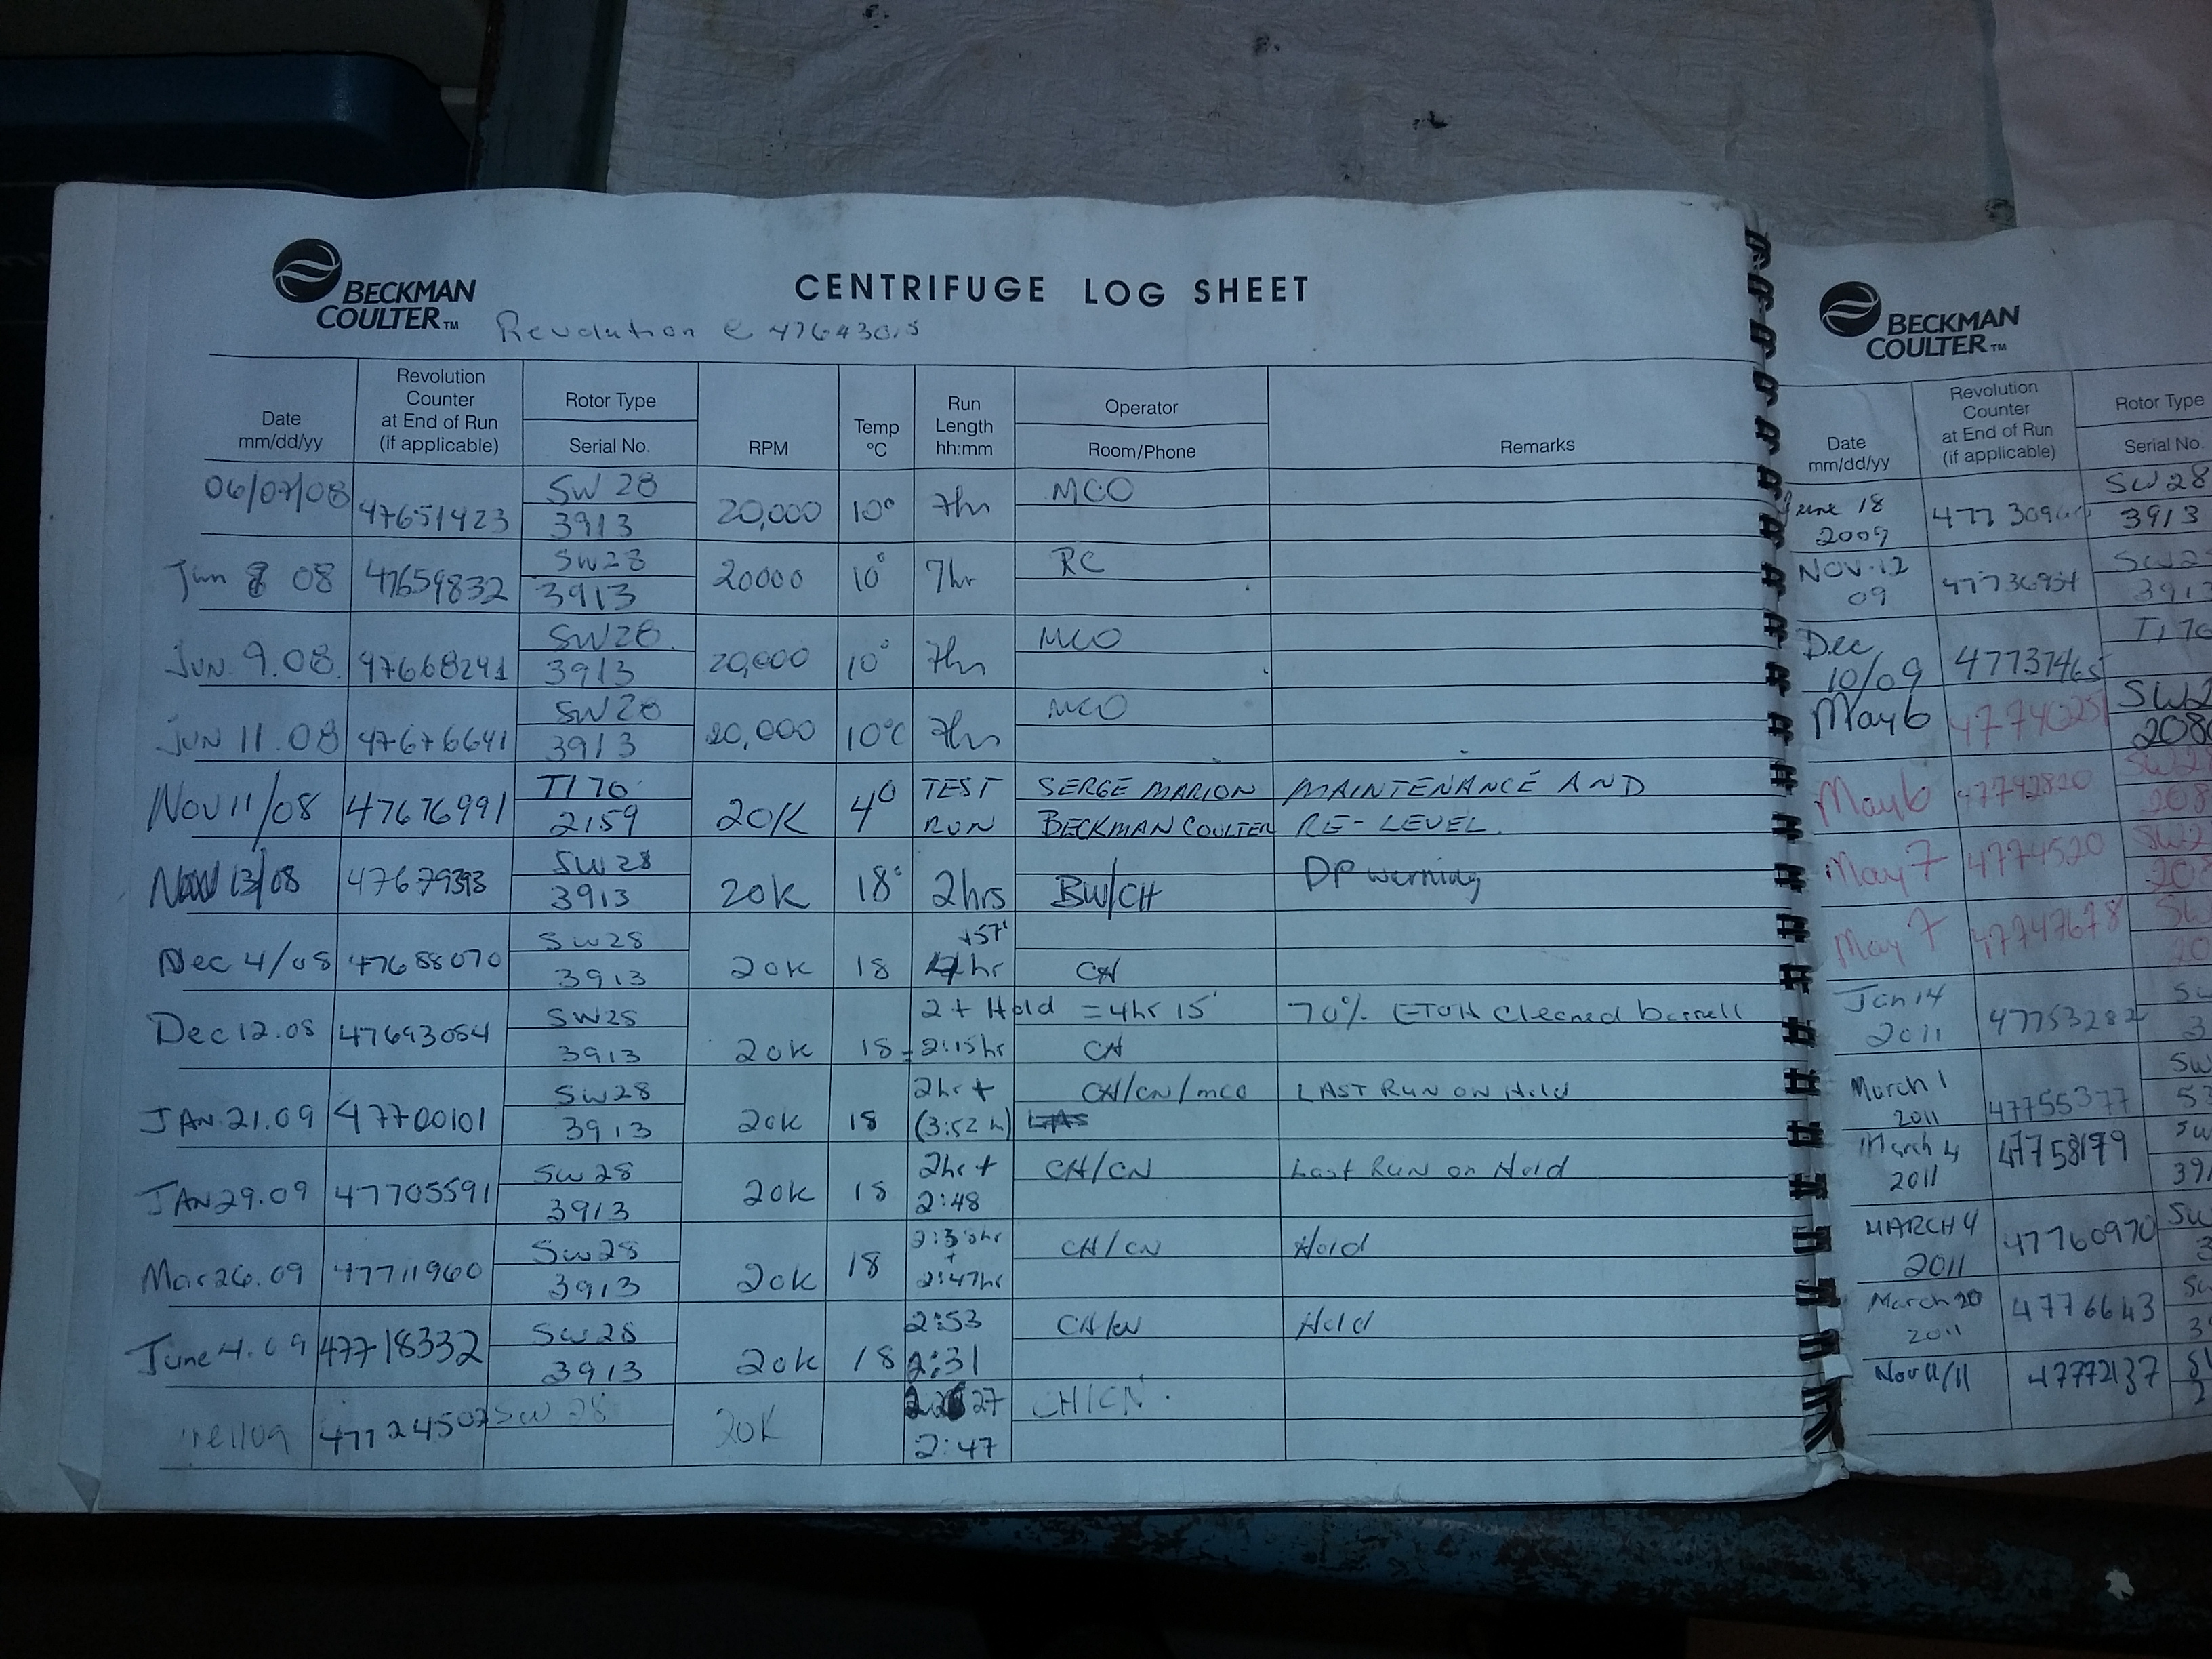 BECKMAN
COULTER™
CENTRIFUGE LOG SHEET
Revolution @
Date
mm/dd/yy
Revolution
Counter
at End of Run
(if applicable)
Rotor Type
Serial No.
RPM
Temp
°C
Run
Length
hh:mm
Operator
Room/Phone
Remarks
06/07/08 47651423 SW 28 3913 20,000 10° 7hr MCO
Jun 8 08 47659832 SW28 3913 20000 10° 7hr RC
JUN 9.08. 47668241 SW28. 3913 20,000 10° 7hr MCO
JUN 11.08 47676641 SW28 3913 20,000 10°C 7hrs MCO
NOV 11/08 47676991 TI 70 2159 20K 4° TEST RUN SERGE MARION BECKMAN COULTER MAINTENANCE AND RE-LEVEL.
Nov 13/08 47679393 SW28 3913 20K 18° 2hrs BW/CH DP warning
Dec 4/08 47688070 SW28 3913 20K 18 hr +57' CH
Dec 12.08 47693054 SW28 3913 20K 18 2 + Hold = 4hr 15' = 2:15hr CH 70% ETOH Cleaned barrell
JAN.21.09 47700101 SW28 3913 20K 18 2hr + (3:52 h) CH/CN/MCO LAST RUN ON Hold
JAN 29.09 47705591 SW28 3913 20K 18 2hr + 2:48 CH/CN Last RUN on Hold
Mar 26.09 47711960 SW28 3913 20K 18 + 2:47hr CH/CN Hold
June 4.09 47718332 SW28 3913 20K 18 2:53 2:31 CH/CN Hold
47724502 SW 28 20K 27 2:47 CH/CN.
BECKMAN
COULTER™
Date
mm/dd/yy
Revolution
Counter
at End of Run
(if applicable)
Rotor Type
Serial No.
June 18 2009 SW28 3913
NOV.12 09 47736954
Dec 10/09 47737465 TI 70
May 6 4774025
May 6 47742820
May 7 4774520
May 7 47747678
Jan 14 2011 47753282
March 1 2011 47755377
March 4 2011 47758179
MARCH 4 2011 47760970
March 20 2011 4776643
Nov 11/11 47772137